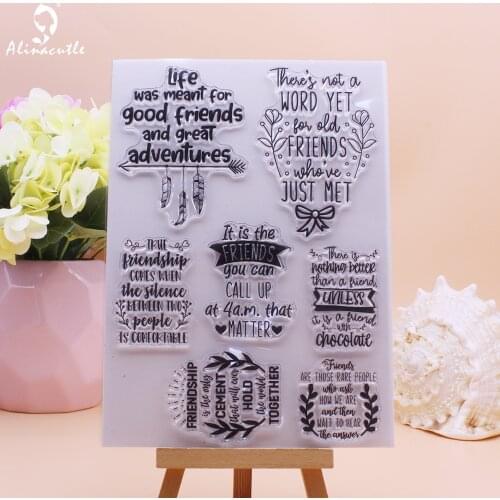 Alinacutle
life
was meant for
good friends
and great
adventures
There's not a
WORD YET
for old
FRIENDS
who've
JUST MET
TRUE
friendship
COMES WHEN
the silence
BETWEEN TWO
people
IS COMFORTABLE
It is the
FRIENDS
you can
CALL UP
at 4a.m. that
MATTER
There is
nothing better
than a friend,
UNLESS
it is a friend
with
chocolate
FRIENDSHIP
is the only
CEMENT
that will ever
HOLD
the world
TOGETHER
Friends
ARE THOSE RARE PEOPLE
who ask
HOW WE ARE
and then
WAIT TO HEAR
the answer.